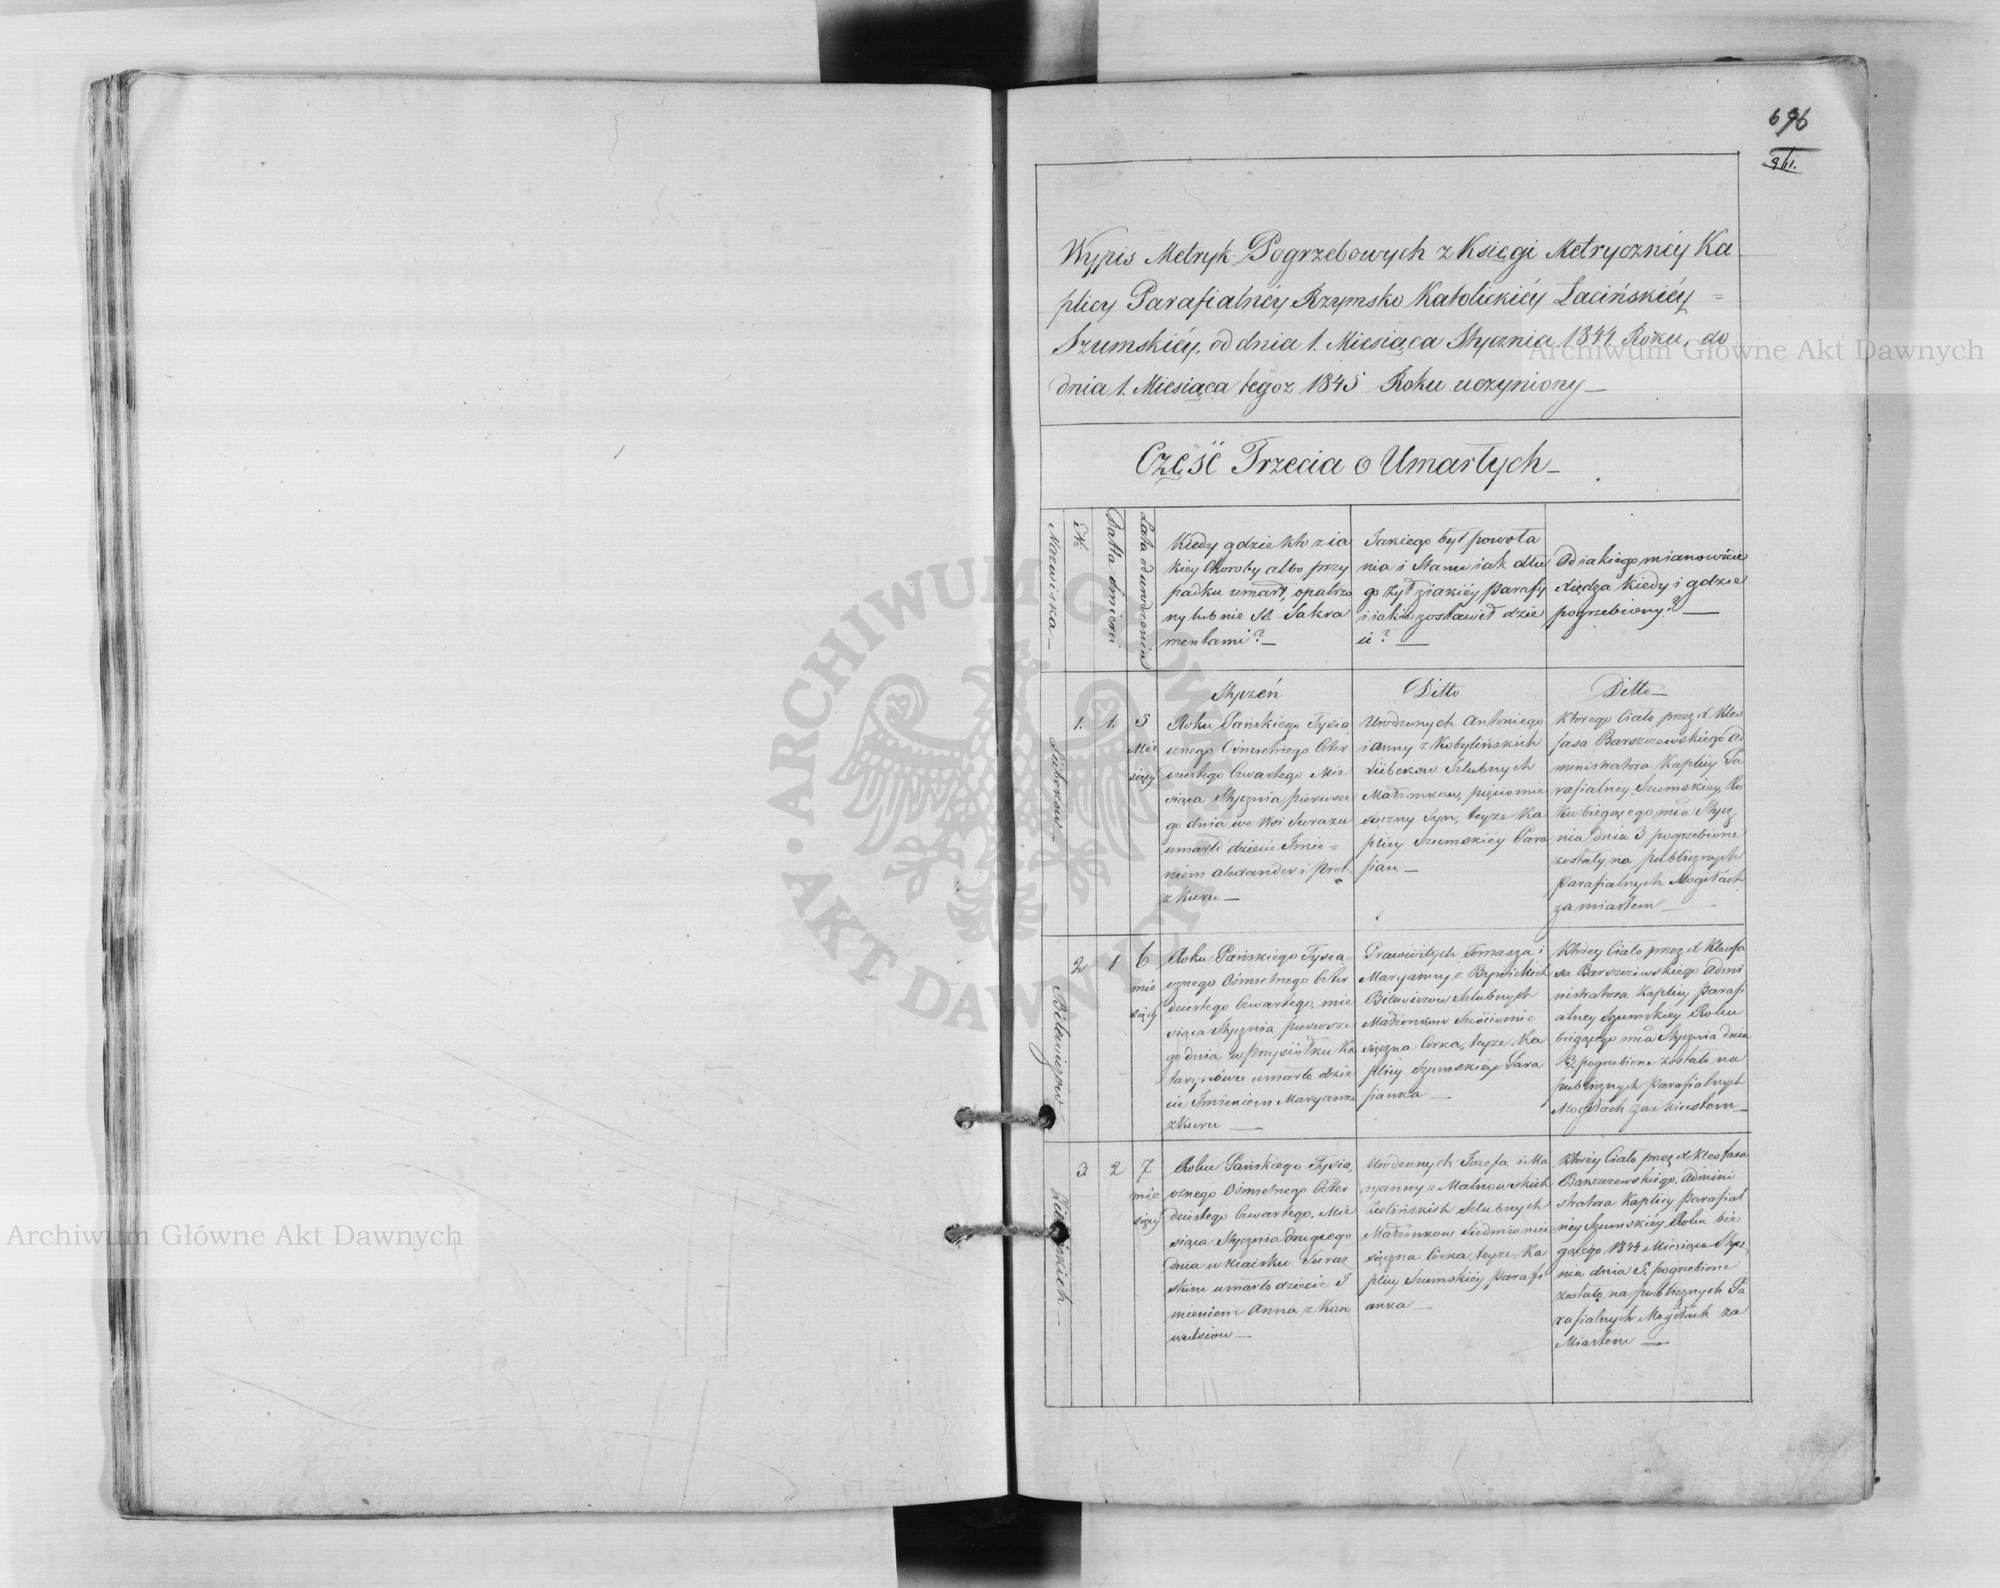 696
961.
Wypis Metryk Pogrzebowych z Księgi Metrycznéy Ka
plicy Parafialnéy Rzymsko Katolickiéy Łacińskiéy =
Szumskiéy, od dnia 1. Miesiąca Stycznia 1844 Roku, do
dnia 1. Miesiąca tegoz 1845 Roku uczyniony_
Część Trzecia o Umarłych_
Nazwiska_
No
Datta śmierci
Lata od urodzenia
Kiedy gdzie kto z ia
kiey Choroby albo przy
padku umarł, opatrzo
ny lub nie SS. Sakra
mentami?_
Jakiego był powoła
nia i Stanu iak dłu
go żył z iakiéy parafij
i iakie zostawił dzie
ci? _
Od iakiego mianowicie
Xiędza kiedy i gdzie
pogrzebiony? _
Lübekow_
1.
1.
5
Mie
sięcy
Styczeń
Roku Pańskiego Tysią
cznego Ośmsetnego Czter
dziestego Czwartego Mie
siąca Stycznia pierwsze
go dnia we Wsi Surażu
umarło dziecie Imie=
niem Alexander i Prot
z Kuru_
Ditto
Urodzonych Antoniego
i Anny z Kobylińskich
Lübekow Szlubnych
Małżonkow, pięciomie
sięczny Syn, teyże Ka
plicy Szumskiéy Para
fian_
Ditto_
Ktorego Ciało przez X. Kleo
fasa Barszczewskiego Ad
ministratora Kaplicy Pa
rafialney Szumskiey Ro
ku biegącego mca Stycz
nia dnia 3 pogrzebione
zostały na publicznych
Parafialnych Mogiłach
za miastem_
Bilewiczow
2
1
6
mie
sięcy
Roku Pańskiego Tysią=
cznego Ośmsetnego Czter
dziestego Czwartego, mie
siąca Stycznia pierwsze
go dnia w przysiółku Ka
tarzynówce umarło dzie
cie Imieniem Maryanna
z Kuru_
Prawowitych Tomasza i
Maryanny z
Bilewiczow Szlubnych
Małżonkow Sześciomie
sięczna Córka, teyże Ka
plicy Szumskiéy Para
fianka_
Któréy Ciało przez X. Kleofa
sa Barszczewskiego Admi
nistratora Kaplicy Parafi
alney Szumskiey Roku
biegącego mca Stycznia dnia
3. pogrzebione zostało na
publicznych Parafialnych
Mogiłach za miastem_
Zielińskich_
3
2
7
mie
sięcy
Roku Pańskiego Tysią,
cznego Ośmsetnego Czter
dziestego Czwartego, Mie
siąca Stycznia drugiego
dnia w Miaśtku Suraz
skim umarło dziecie I
mieniem Anna z Kon
wulsiow_
Urodzonych Jozefa i Ma
ryanny z Malnowskich
Zielińskich Szlubnych
Małżonkow Siedmiomie
sięczna Córka, teyże, Ka
plicy Szumskiéy parafi
anka_
Któréy Ciało przez X. Kleofasa
Barszczewskiego, Admini
stratora Kaplicy Parafial
néy Szumskiéy Roku bie
gącego 1844 Miesiąca Stycz
nia dnia 5. pogrzebione
zostało na publicznych Pa
rafialnych Mogiłach za
Miastem_
Archiwum Główne Akt Dawnych
Archiwum Główne Akt Dawnych
ARCHIWUM GŁÓWNE AKT DAWNYCH